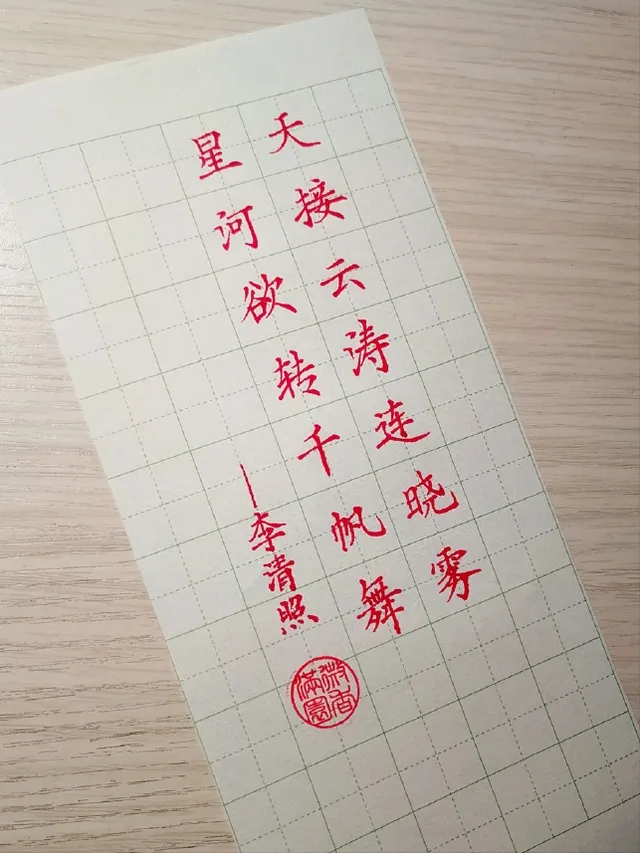 天接云涛连晓雾
星河欲转千帆舞
—李清照
微香
满园